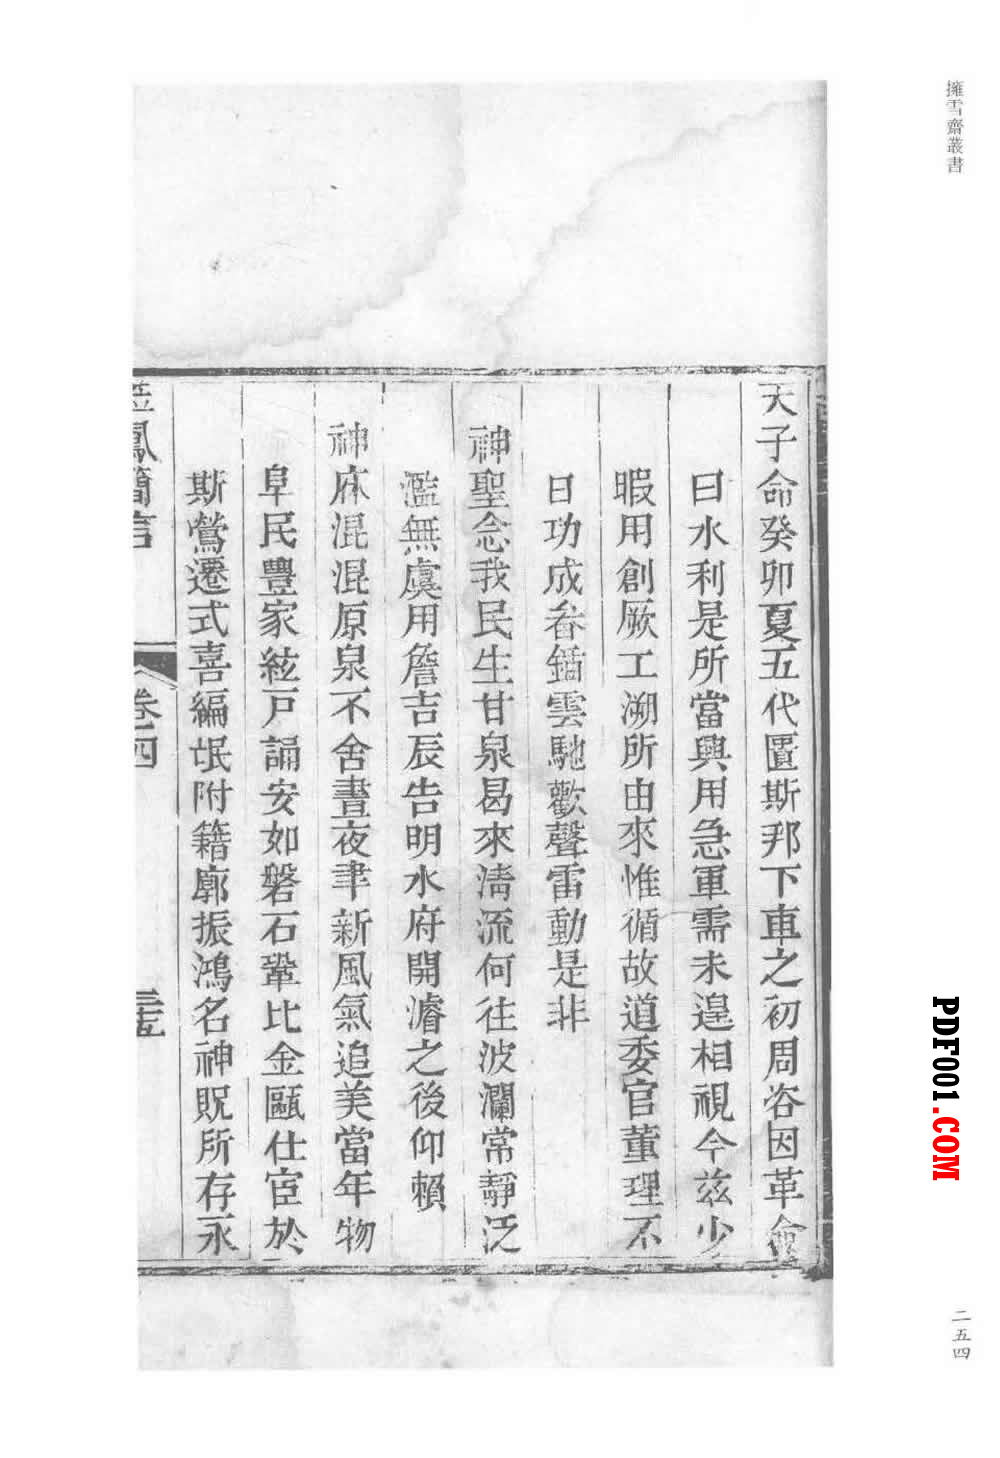 擁雪齋叢書
天子命癸卯夏五代匱斯邦下車之初周咨因革僉
曰水利是所當興用急軍需未遑相視今兹少
暇用創厥工溯所由來惟循故道委官董理不
日功成畚鍤雲馳歡聲雷動是非
神聖念我民生甘泉曷來淸流何往波瀾常靜泛
濫無虞用詹吉辰告明水府開濬之後仰賴
神庥混混原泉不舍晝夜聿新風氣追美當年物
阜民豐家絃戸誦安如磐石鞏比金甌仕宦於
斯鶯遷式喜編氓附籍廓振鴻名神貺所存永
鳳簡言
卷四
三五
二五四
PDF001.COM